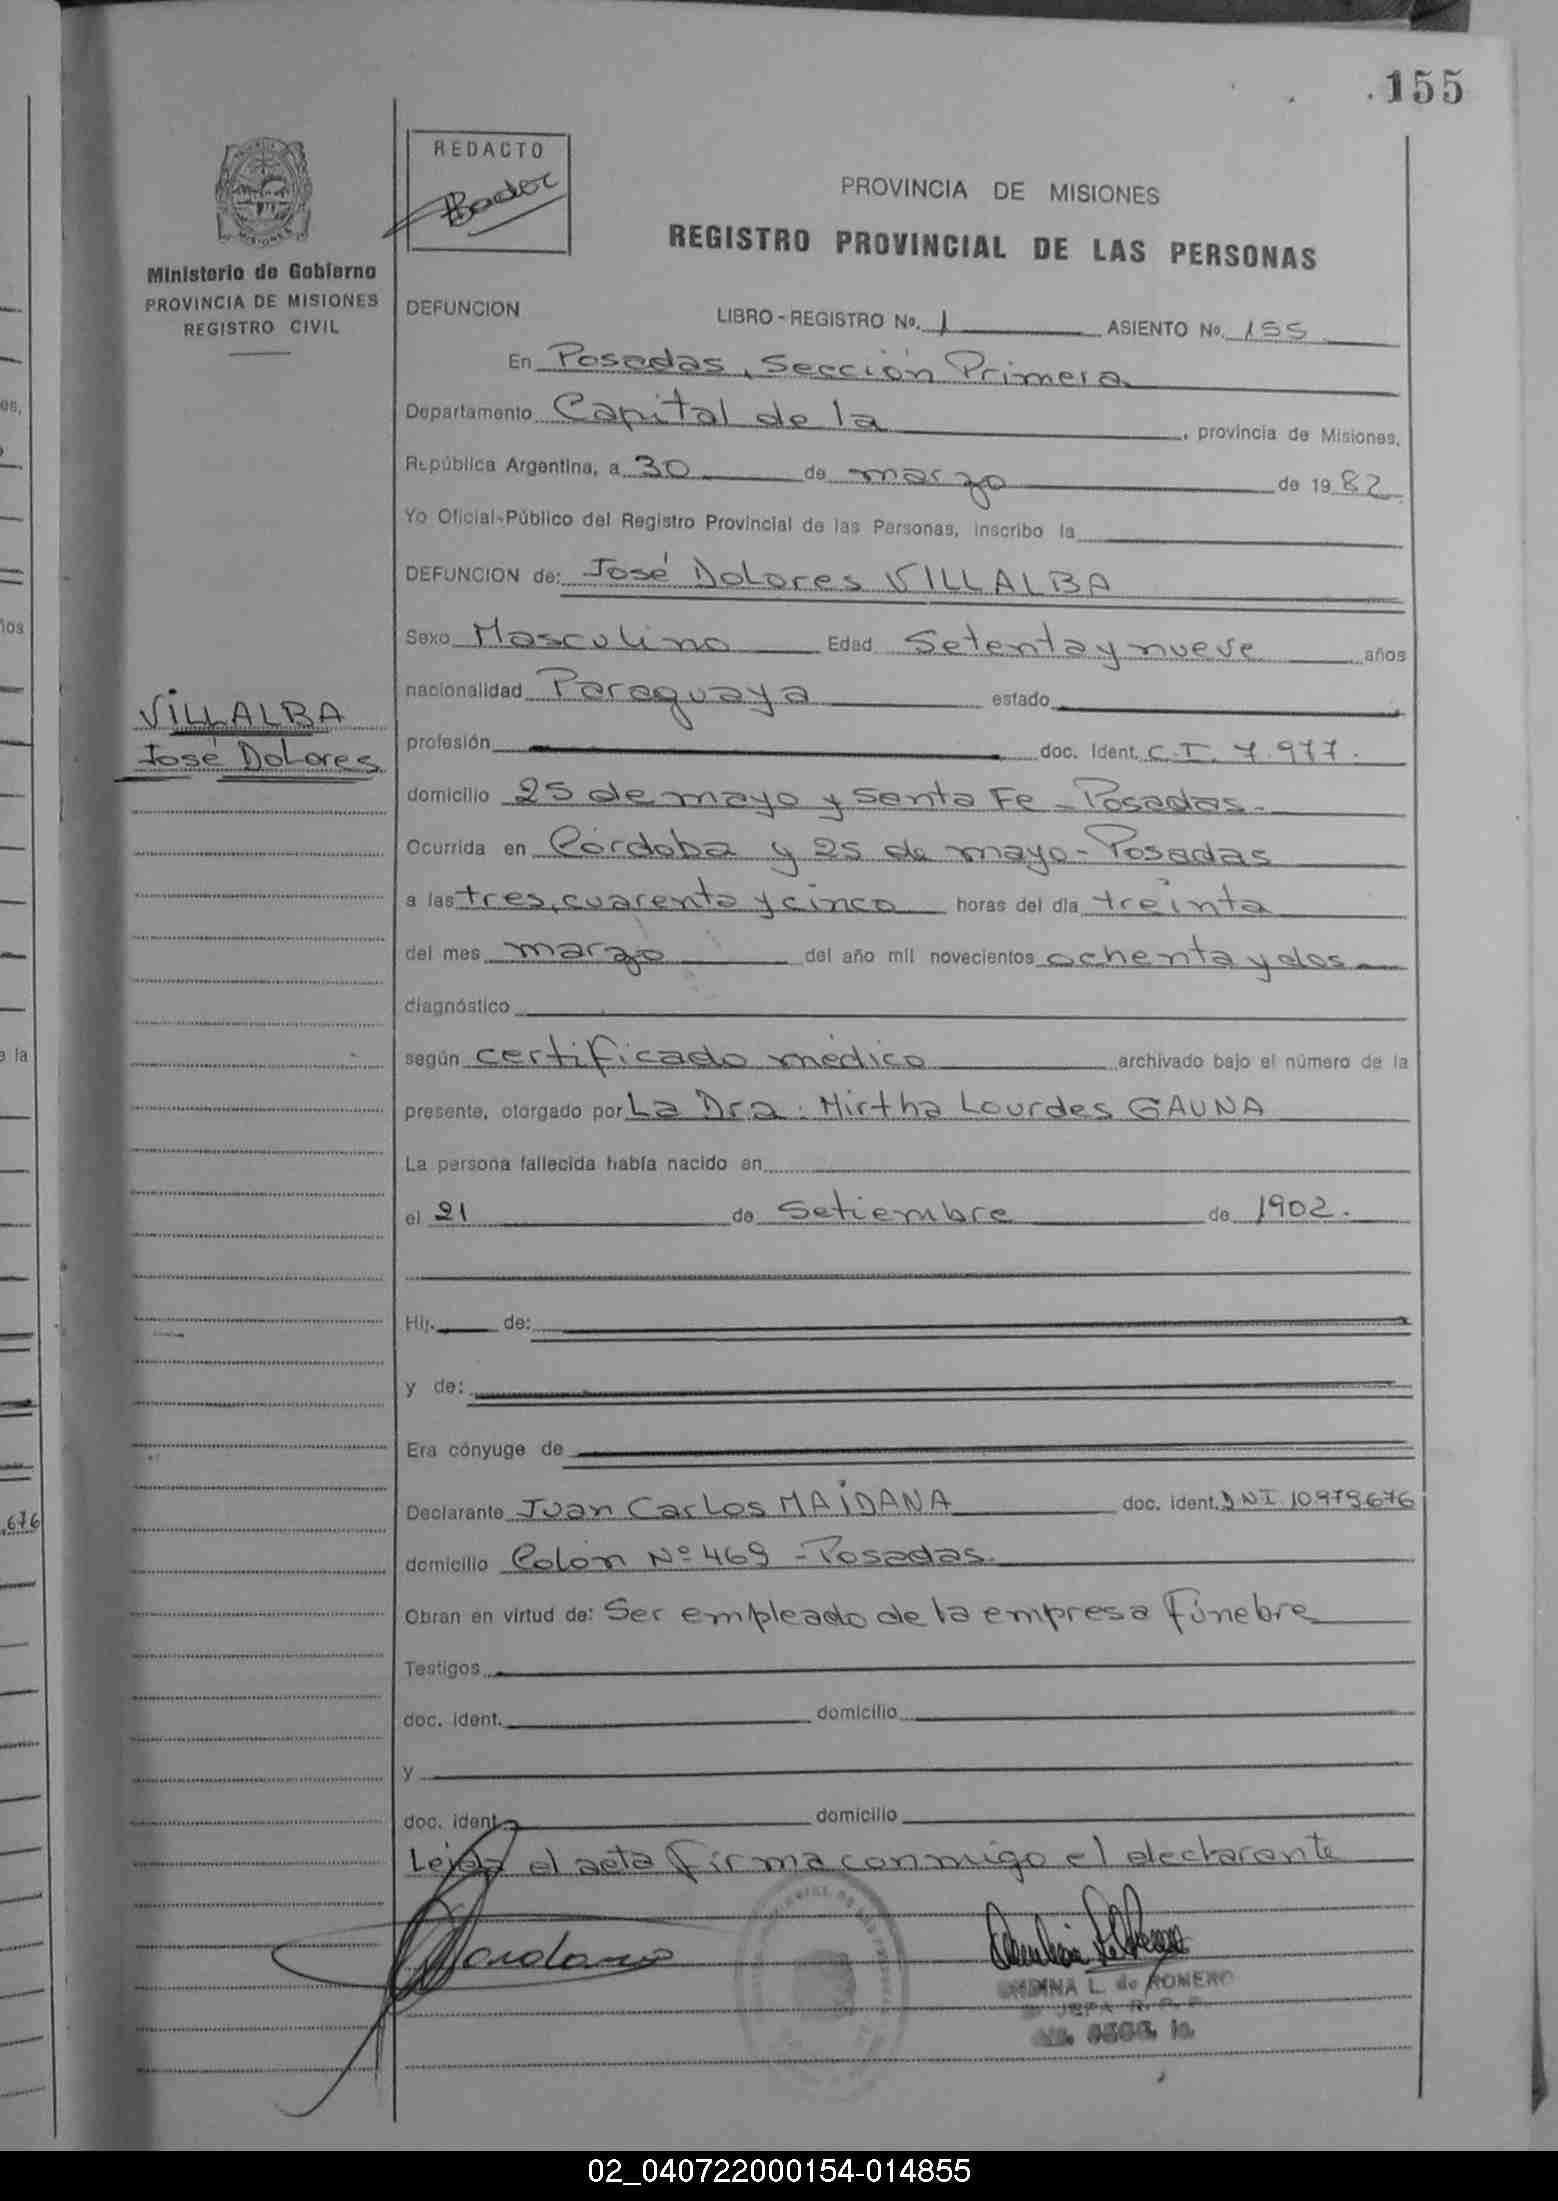 155
REDACTO
Ministerio de Gobierno
PROVINCIA DE MISIONES
REGISTRO CIVIL
PROVINCIA DE MISIONES
REGISTRO PROVINCIAL DE LAS PERSONAS
DEFUNCION LIBRO-REGISTRO Nº. 1 ASIENTO Nº. 155
En Posadas, Sección Primera
Departamento Capital de la , provincia de Misiones,
República Argentina, a 30 de marzo de 1982
Yo Oficial-Público del Registro Provincial de las Personas, inscribo la
DEFUNCION de: José Dolores VILLALBA
Sexo Masculino Edad Setenta y nueve años
nacionalidad Paraguaya estado
VILLALBA
José Dolores
profesión doc. ident. C.I. 7.977.
domicilio 25 de mayo y Santa Fe - Posadas.
Ocurrida en Córdoba y 25 de mayo - Posadas
a las tres, cuarenta y cinco horas del día treinta
del mes marzo del año mil novecientos ochenta y dos
diagnóstico
según certificado médico archivado bajo el número de la
presente, otorgado por La Dra. Mirtha Lourdes GAUNA
La persona fallecida había nacido en
el 21 de Setiembre de 1902.
Hij. de:
y de:
Era cónyuge de
Declarante Juan Carlos MAIDANA doc. ident. DNI 10979676
domicilio Colón Nº 469 - Posadas.
Obran en virtud de: Ser empleado de la empresa Fúnebre
Testigos
doc. ident. domicilio
y
doc. ident. domicilio
Leída el acta firma conmigo el declarante
L. de ROMERO
02_040722000154-014855